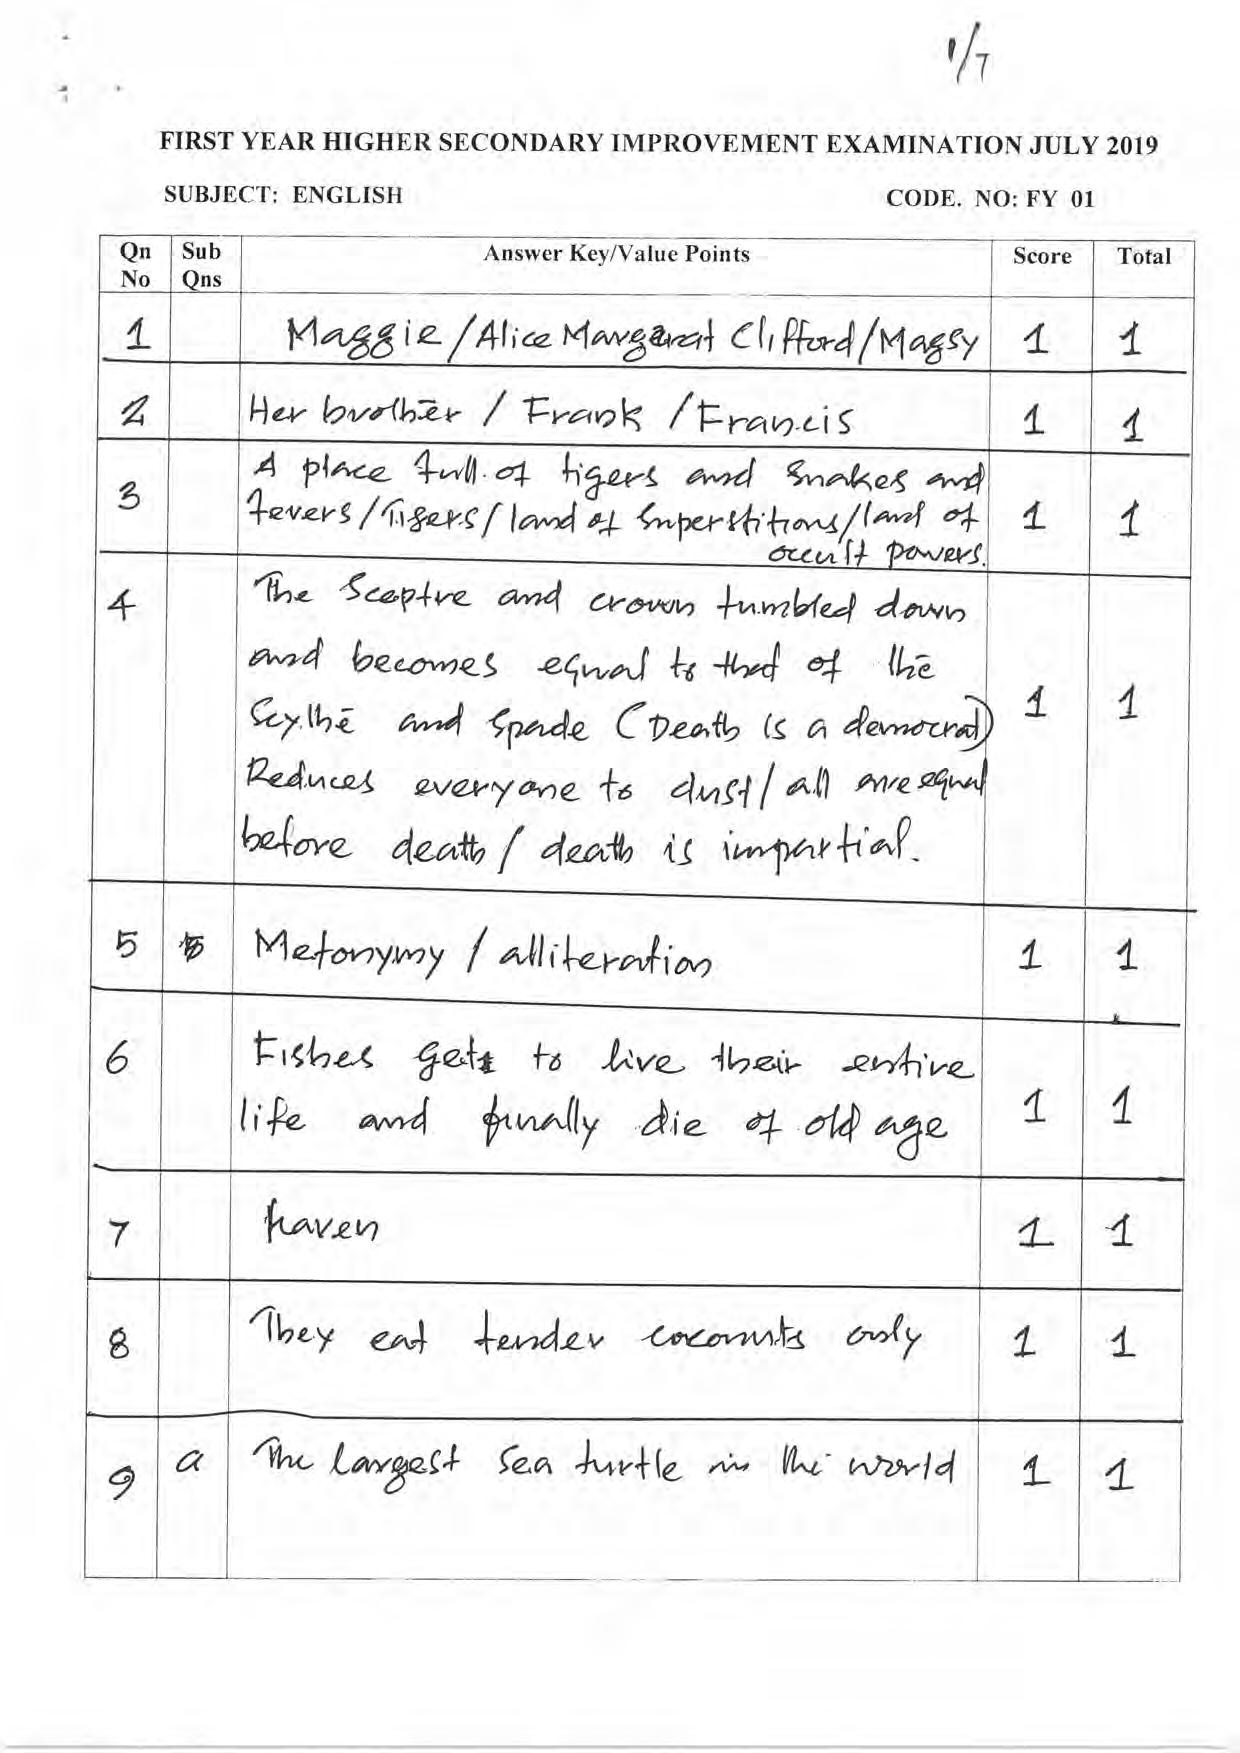 1/7
FIRST YEAR HIGHER SECONDARY IMPROVEMENT EXAMINATION JULY 2019
SUBJECT: ENGLISH CODE. NO: FY 01
Qn No Sub Qns Answer Key/Value Points Score Total
1 Maggie/Alice Margaret Clifford/Magsy 1 1
2 Her brother / Frank / Francis 1 1
3 A place full of tigers and snakes and
fevers/Tigers/land of superstitions/land of
occult powers. 1 1
4 The Sceptre and crown tumbled down
and becomes equal to that of the
Scythe and spade (Death is a democrat)
Reduces everyone to dust/ all are equal
before death/ death is impartial. 1 1
5 Metonymy / alliteration 1 1
6 Fishes gets to live their entire
life and finally die of old age 1 1
7 haven 1 1
8 They eat tender coconuts only 1 1
9 a The largest sea turtle in the world 1 1